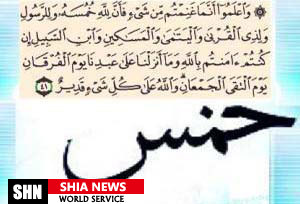 وَٱعْلَمُوٓا۟ أَنَّمَا غَنِمْتُم مِّن شَىْءٍ فَأَنَّ لِلَّهِ خُمُسَهُۥ وَلِلرَّسُولِ
وَلِذِى ٱلْقُرْبَىٰ وَٱلْيَتَـٰمَىٰ وَٱلْمَسَـٰكِينِ وَٱبْنِ ٱلسَّبِيلِ إِن
كُنتُمْ ءَامَنتُم بِٱللَّهِ وَمَآ أَنزَلْنَا عَلَىٰ عَبْدِنَا يَوْمَ ٱلْفُرْقَانِ
يَوْمَ ٱلْتَقَى ٱلْجَمْعَانِ وَٱللَّهُ عَلَىٰ كُلِّ شَىْءٍ قَدِيرٌ ٤١
خمس
SHN SHIA NEWS
WORLD SERVICE